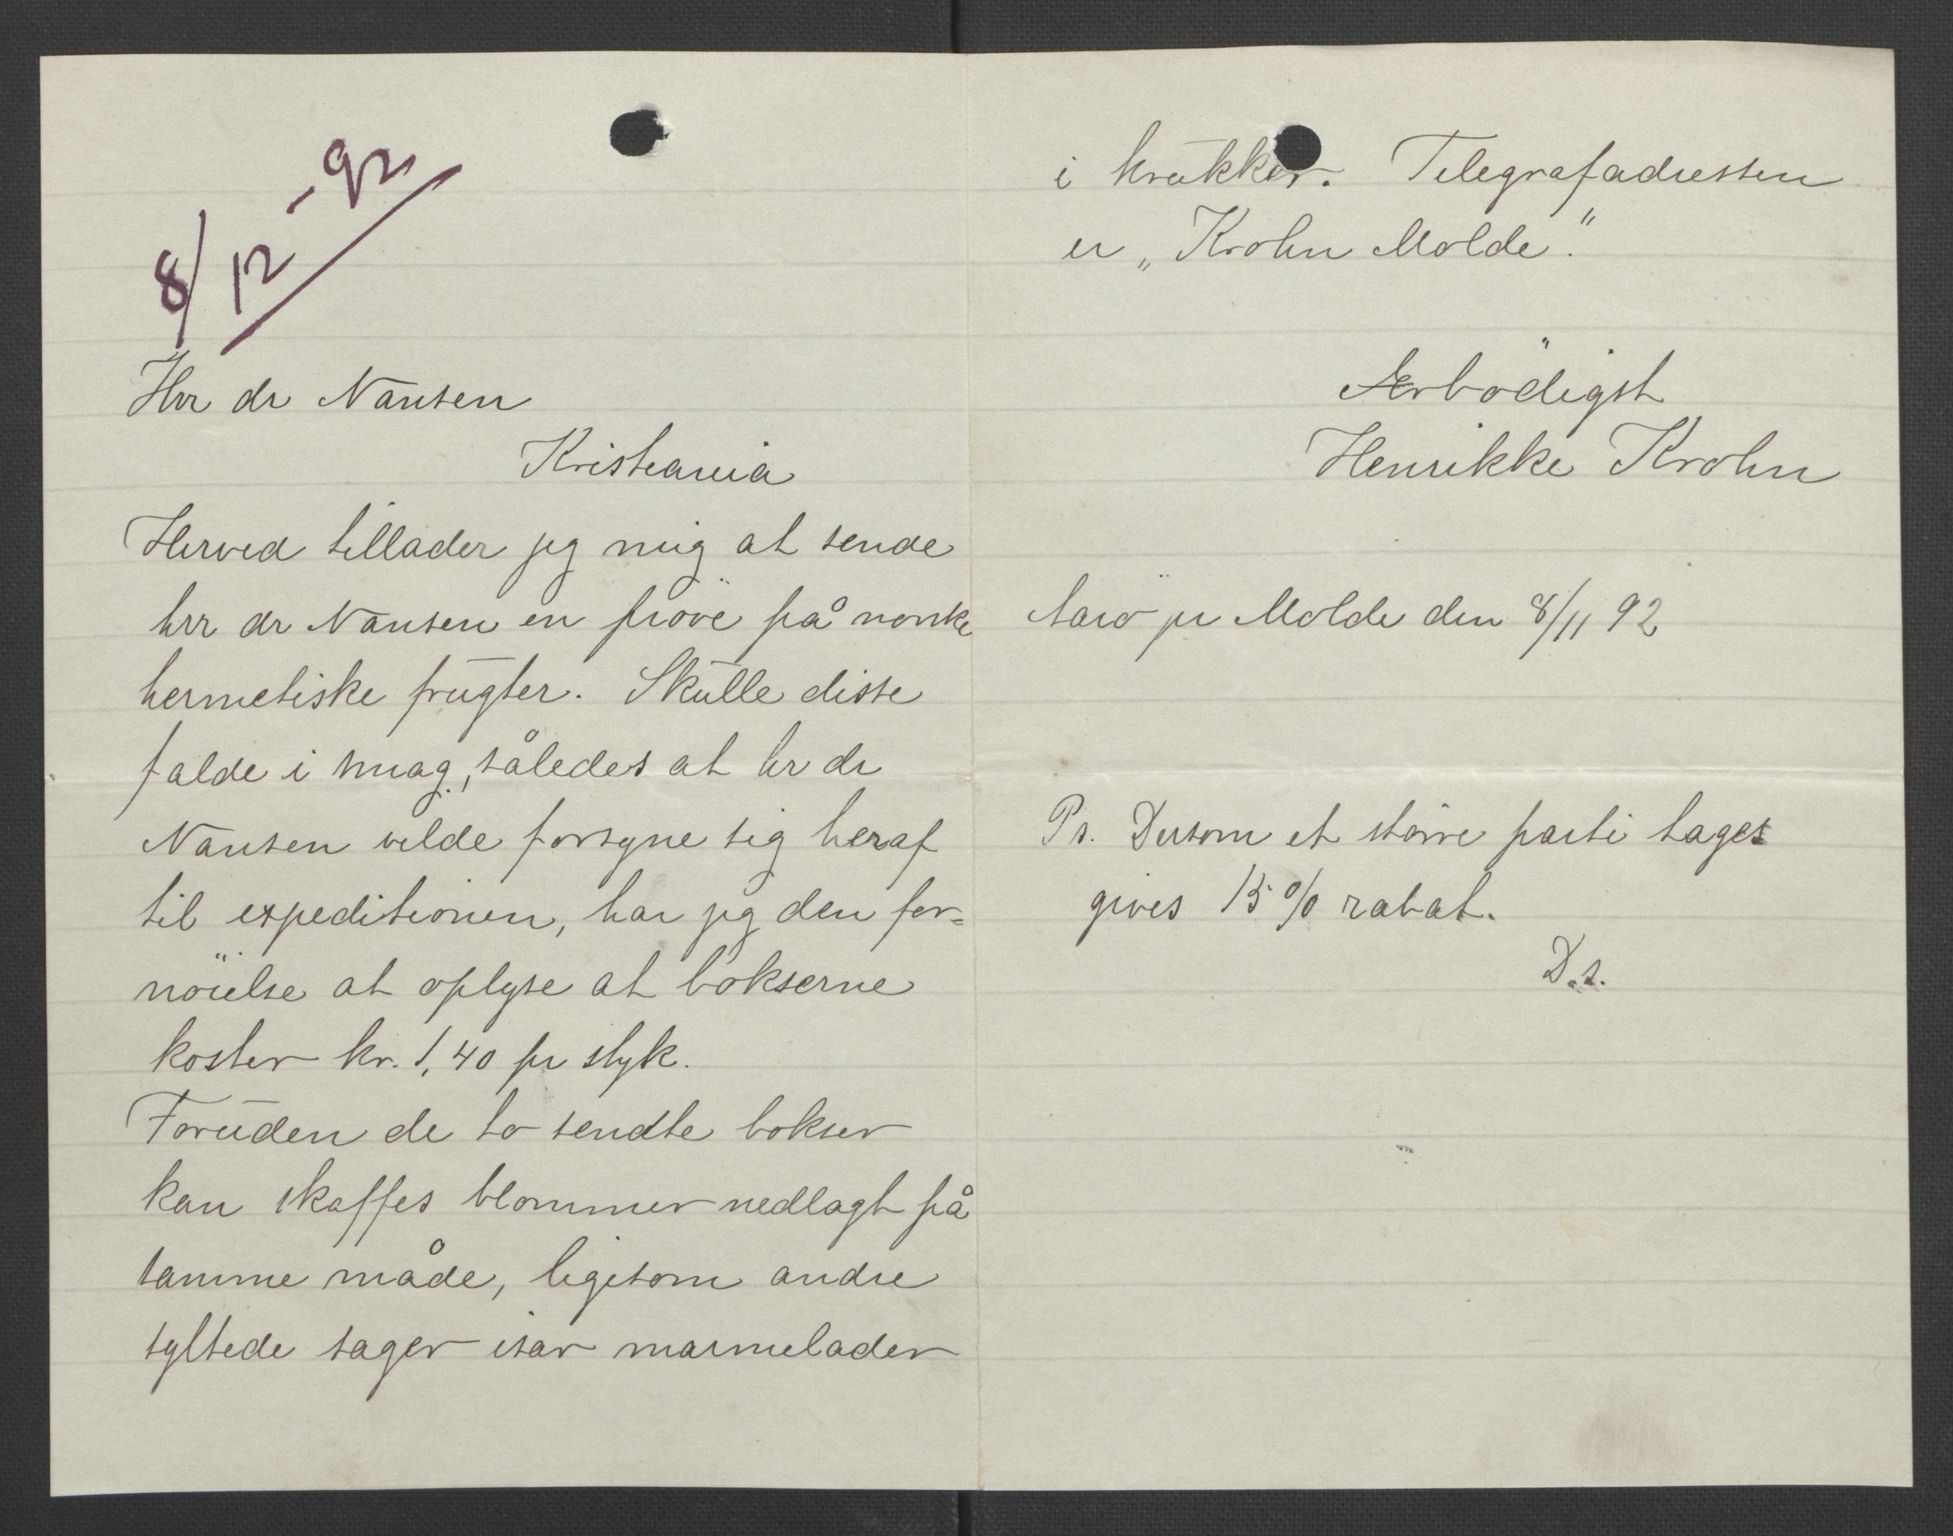 8/12 -92
Hrr dr Nansen
Kristiania
Herved tillader jeg mig at sende
hrr dr Nansen en pröve på norske
hermetiske frugter. Skulle disse
falde i smag, således at hr dr
Nansen vilde forsyne sig heraf
til expeditionen, har jeg den for=
nöielse at oplyse at bokserne
koster kr. 1,40 pr styk.
Foruden de to sendte bokser
kan skaffes blommer nedlagt på
samme måde, ligesom andre
syltede sager især marmelader
i krukker. Telegrafadressen
er „Krohn Molde".
Ærbödigst
Henrikke Krohn
Aarö pr Molde den 8/11 92
Ps. Dersom et större parti tages
gives 15% rabat.
D.s.